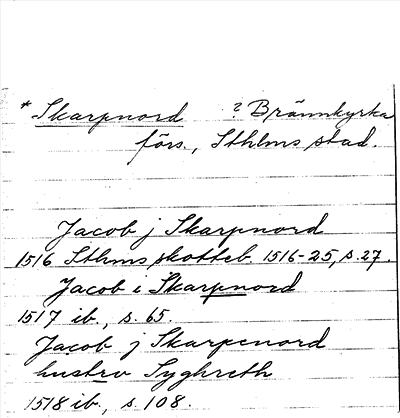 * Skarpnord ? Brännkyrka
förs., Sthlms stad.
Jacob j Skarpnord
1516 Sthms skotteb. 1516-25, s. 27.
Jacob i Skarpnord
1517 ib., s. 65.
Jacob j Skarpenord
hustrv Syghreth
1518 ib., s. 108.